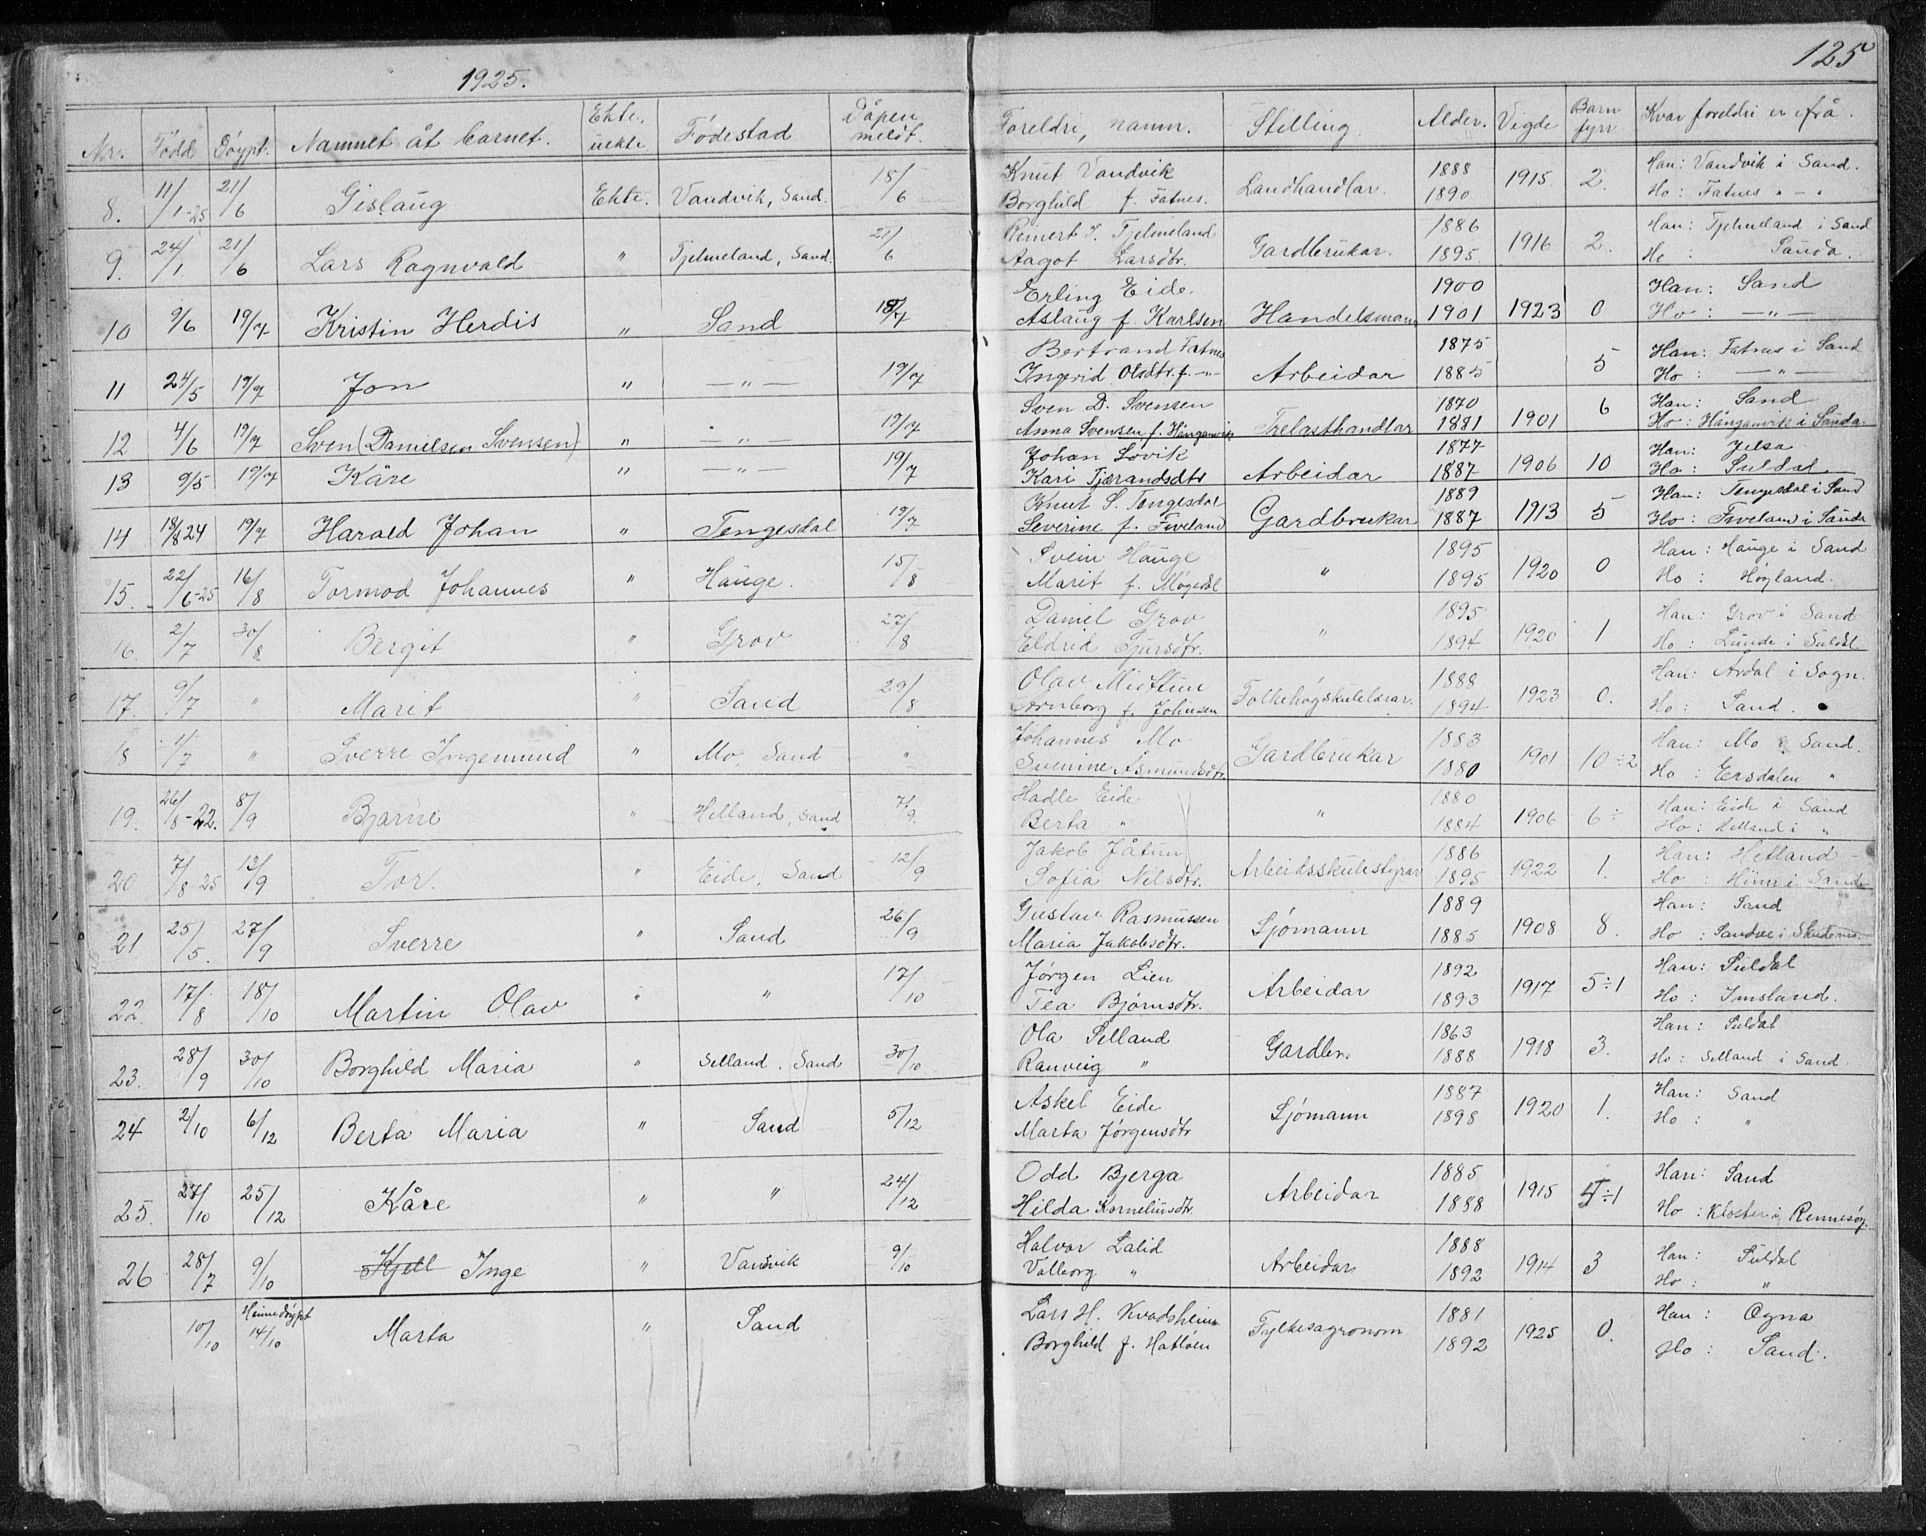 1925.
125
Nr. Fødd Døypt. Namnet åt barnet. Ekte, uekte Fødestad Dåpen meldt. Foreldri, namn. Stilling. Alder. Vigde Barn fyrr Kvar foreldri er ifrå.
8. 11/1-25 21/6 Gislaug Ekte. Vandvik, Sand. 15/6 Knut Vandvik Landhandlar. 1888 1915 2. Han: Vandvik i Sand.
Borghild f. Fatnes. 1890 Ho: Fatnes " - "
9. 24/1. 21/6 Lars Ragnvald " Tjelmeland, Sand. 21/6 Reinert T. Tjelmeland Gardbrukar. 1886 1916 2. Han: Tjelmeland i Sand
Aagot Larsdtr. 1895 Ho: Sauda.
10 9/6 19/7 Kristin Herdis " Sand 18/7 Erling Eide. Handelsmann 1900 1923 0 Han: Sand
Aslaug f. Karlsen 1901 Ho: — " —
11 24/5 19/7 Jon " — " — 19/7 Bertrand Fatnes Arbeidar 1875 5 Han: Fatnes i Sand
Ingerid Olsdtr. f. — " — 1885 Ho: — " —
12 4/6 19/7 Sven (Danielsen Svensen) " — " — 19/7 Sven D. Svensen Trelasthandlar 1870 1901 6 Han: Sand
Anna Svensen f. Hånganvik 1881 Ho: Hånganvik i Sauda.
13 9/5 19/7 Kåre " — " — 19/7 Johan Lovik Arbeidar 1877 1906 10 Han: Jelsa
Kari Tjærandsdtr 1887 Ho: Suldal
14 18/8 24 19/7 Harald Johan " Tengesdal 19/7 Knut S. Tengesdal Gardbrukar 1889 1913 5 Han: Tengesdal i Sand
Severine f. Fiveland 1887 Ho: Fiveland i Sauda
15. 22/6-25 16/8 Tormod Johannes " Hauge. 15/8 Svein Hauge " 1895 1920 0 Han: Hauge i Sand
Marit f. Mogedal 1895 Ho: Høgland.
16. 2/7 30/8 Bergit " Grov 27/8 Daniel Grov " 1895 1920 1 Han: Grov i Sand
Eldrid Sjursdtr. 1894 Ho: Lunde i Suldal
17. 9/7 " Marit " Sand 29/8 Olav Midttun Folkehøgskulelærar. 1888 1923 0. Han: Årdal i Sogn.
Arnborg f. Johnsen 1894 Ho: Sand.
18 1/7 " Sverre Ingemund " Mo, Sand " Johannes Mo Gardbrukar 1883 1901 10÷2 Han: Mo i Sand.
Asmundsdtr. 1880 Ho: Eersdalen "
19. 26/8-22. 8/9 Bjarne " Helland, Sand 7/9. Hadle Eide " 1880 1906 6÷ Han: Eide i Sand
Berta " 1884 Ho: Helland i "
20 7/8 25 13/9 Tor. " Eide, Sand 12/9 Jakob Jåtun Arbeidsskulestyrar 1886 1922 1. Han: Hetland
Sofia Nilsdtr. 1895 Ho: i Sand
21 25/5. 27/9 Sverre " Sand 26/9 Gustav Rasmussen Sjømann 1889 1908 8. Han: Sand
Maria Jakobsdtr. 1885 Ho: Sandve i Skudenes
22. 17/8 18/10 Martin Olav " " 17/10 Jørgen Lien Arbeidar 1892 1917 5÷1 Han: Suldal
Tea Bjørnsdtr. 1893 Ho: Imsland.
23. 28/9 30/10 Borghild Maria " Selland, Sand 30/10 Ola Selland Gardbr. 1863 1918 3. Han: Suldal
Ranveig " 1888 Ho: Selland i Sand.
24 2/10 6/12 Berta Maria " Sand 5/12 Askel Eide Sjømann 1887 1920 1. Han: Sand
Marta Jørgensdtr 1898 Ho: "
25. 27/10 25/12 Kåre " " 24/12 Odd Bjerga Arbeidar 1885 1915 5÷1 Han: Sand
Hilda Korneliusdtr. 1888 Ho: Kloster i Rennesøy.
26 28/7 9/10 Kjell Inge " Vandvik 9/10 Halvor Lalid Arbeidar 1888 1914 3 Han: Suldal
Valborg " 1892 Ho: "
10/10 Heimedøypt 14/10 Marta " Sand Lars H. Kvadsheim Fylkesagronom 1881 1925 0. Han: Ogna
Borghild f. Hatløen 1892 Ho: Sand.